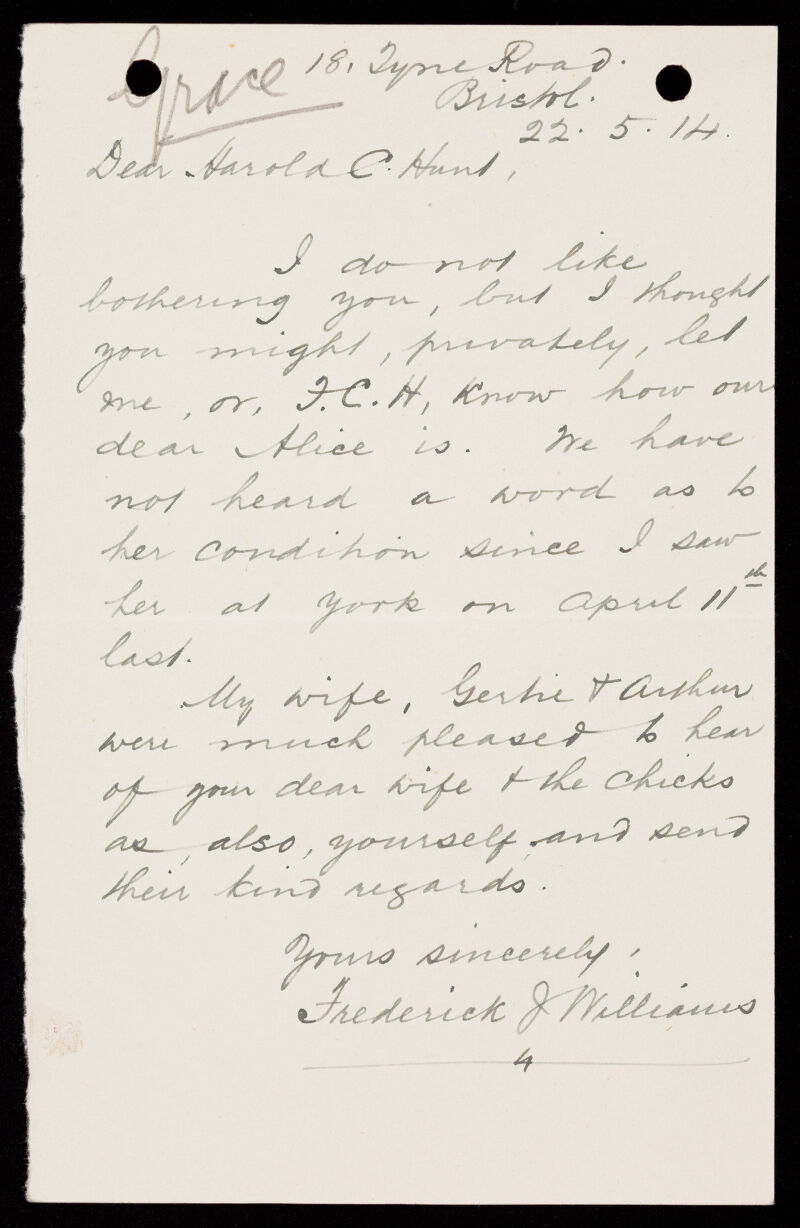 Grace
18, Tyne Road.
Bristol.
22. 5. 14.
Dear Harold C. Hunt,
I do not like
bothering you, but I thought
you might, privately, let
me, or, F.C.H, know how our
dear Alice is. We have
not heard a word as to
her condition since I saw
her at York on April 11th
last.
My wife, Gertie & Arthur
were much pleased to hear
of your dear wife & the chicks
as, also, yourself and send
their kind regards.
Yours sincerely,
Frederick J Williams
4